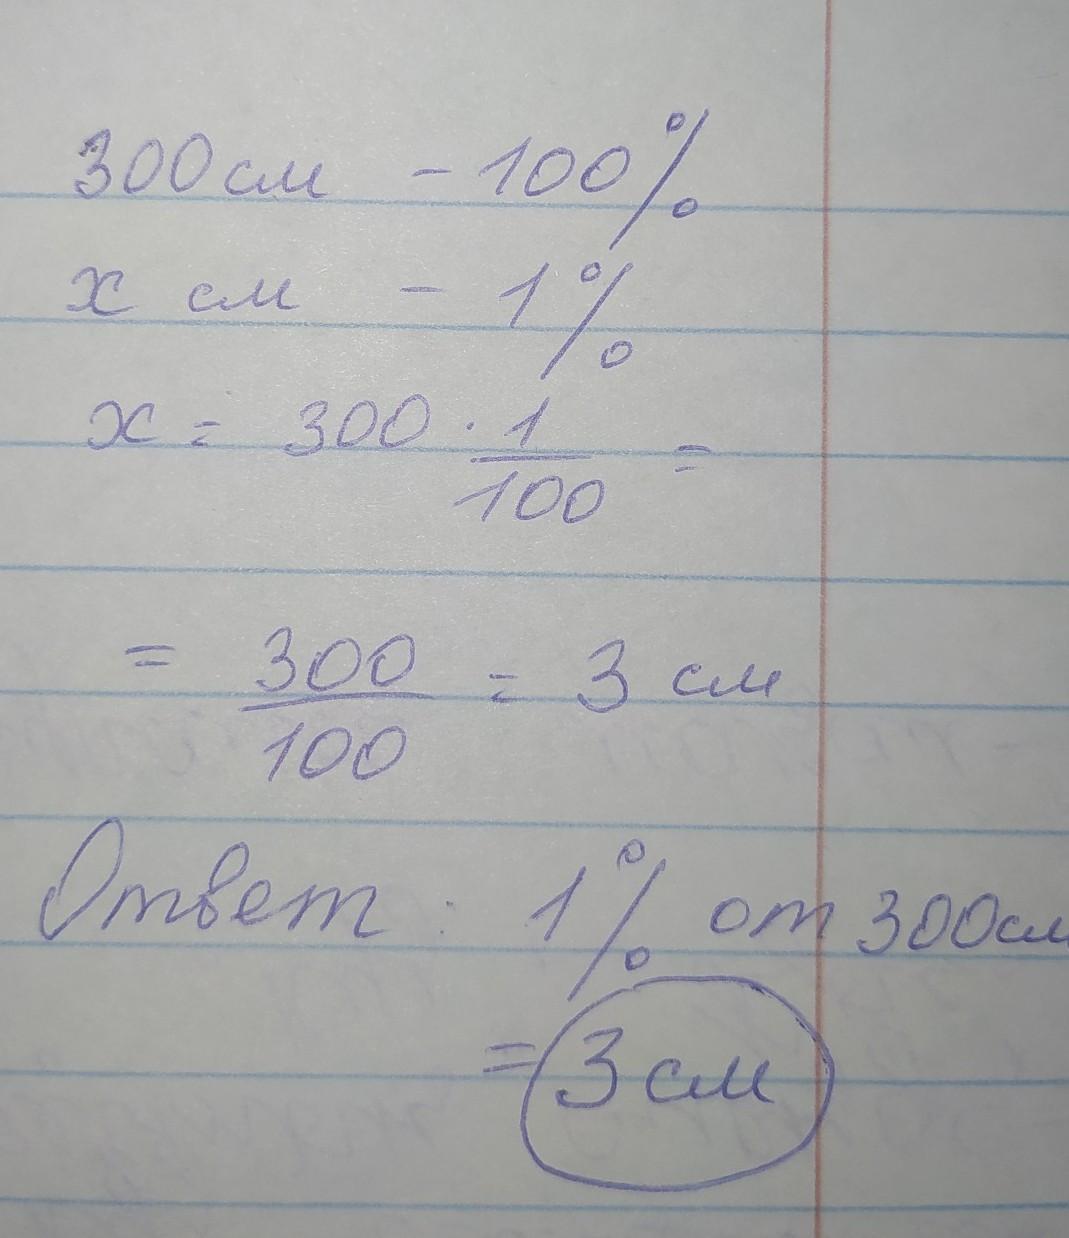 300см - 100%
х см - 1%
х = 300 · 1/100 =
= 300/100 = 3 см
Ответ: 1% от 300см
= 3 см